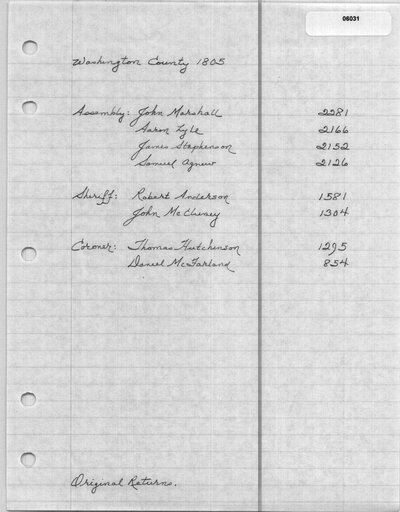 06031
Washington County 1805
Assembly: John Marshall 2281
Aaron Lyle 2166
James Stephenson 2152
Samuel Agnew 2126
Sheriff: Robert Anderson 1581
John McCluney 1304
Coroner: Thomas Hutchinson 1295
Daniel McFarland 854
Original Returns.